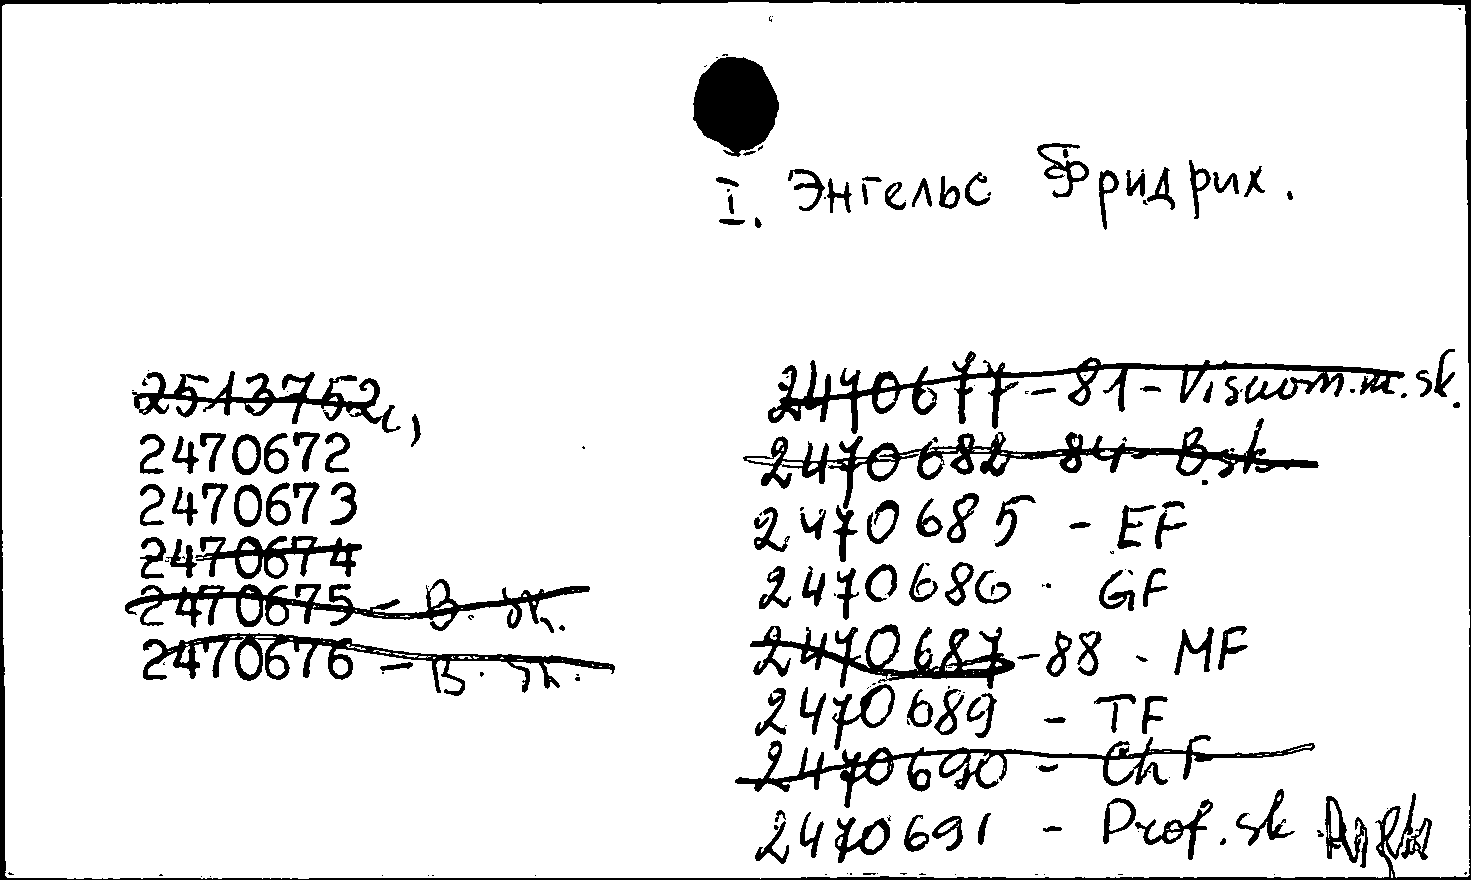 I. Энгельс Фридрих.
2513752
2470672
2470673
2470674
2470675 - B. sk.
2470676 - B. sk.
2470677 - 81 - sk.
2470682 - 84 - B. sk.
2470685 - EF
2470686 . GF
2470687 - 88 . MF
2470689 - TF
2470690 - ChF
2470691 - Prof. sk